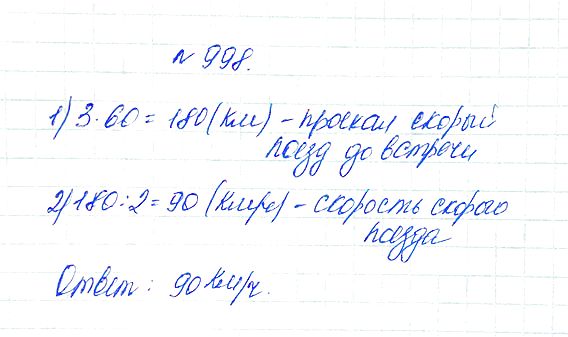 № 998.
1) 3·60 = 180 (км) – проехал скорый
поезд до встречи
2) 180:2 = 90 (км/ч) – скорость скорого
поезда
Ответ: 90 км/ч.